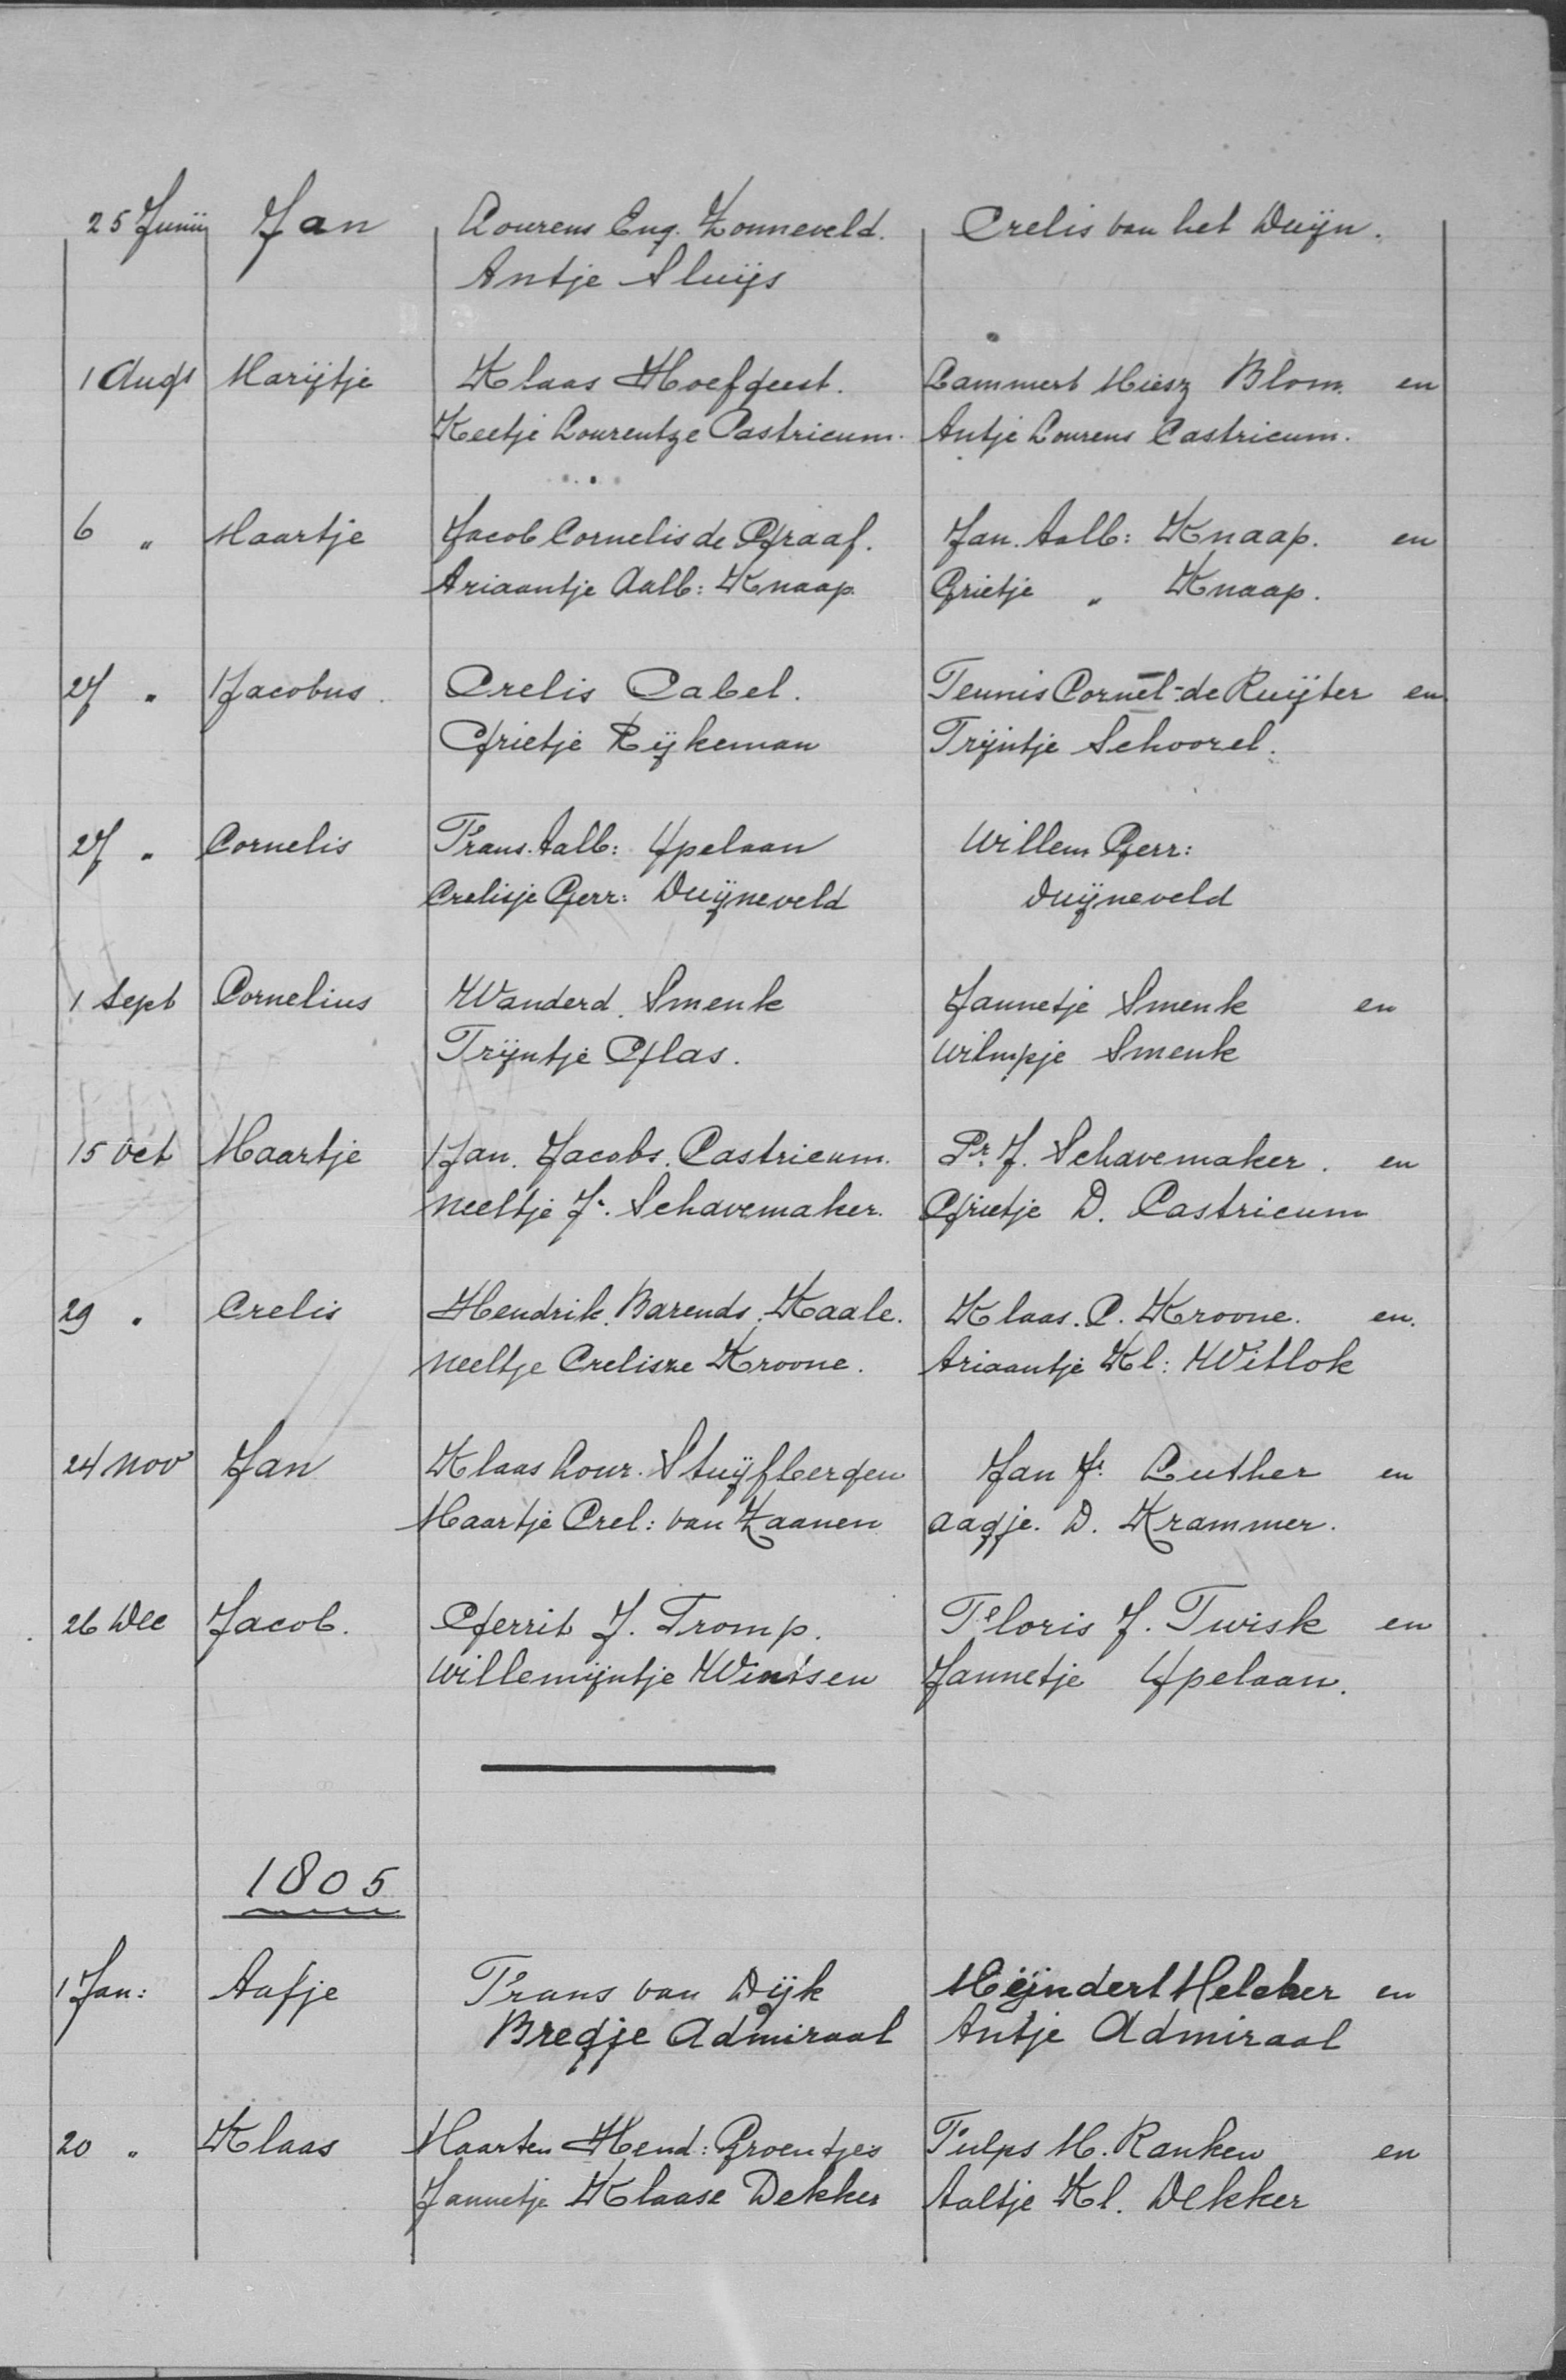 25 Junij Jan Lourens Eng. Zonneveld. Crelis van het Duijn.
Antje Sluijs
1 Augs Marijtje Klaas Hoefgeest. Lammert Miesz Blom. en
Keetje Lourentze Castricum. Antje Lourens Castricum.
6 " Maartje Jacob Cornelis de Graaf. Jan. Aalb: Knaap. en
Ariaantje Aalb: Knaap. Grietje " Knaap.
27 " Jacobus. Crelis Cabel. Teunis Cornel-de Ruijter en
Grietje Rijkeman Trijntje Schoorel.
27 " Cornelis Frans. Aalb: IJpelaan Willem Gerr:
Crelisje Gerr: Duijneveld Duijneveld
1 Sept Cornelius Wanderd. Smenk Jannetje Smenk en
Trijntje Glas. Wilmpje Smenk
15 Oct Maartje Jan. Jacobs. Castricum. Pr. J. Schavemaker. en
Neeltje Jr. Schavemaker. Grietje D. Castricum
29 " Crelis Hendrik. Barends. Kaale. Klaas. C. Kroone. en.
Neeltje Crelisze Kroone. Ariaantje Kl: Witlok
24 Nov Jan Klaas Lour. Stuijfbergen Jan Jr. Luther en
Maartje Crel: van Zaanen Aagje. D. Krammer.
26 Dec Jacob. Gerrit J. Tromp. Floris J. Twisk en
Willemijntje Wintsen Jannetje IJpelaan.
1805
1 Jan: Aafje Frans van Dijk Meijndert Helcker en
Bregje Admiraal Antje Admiraal
20 " Klaas Maarten Hend: Groentjes Fulps M. Ranken en
Jannetje Klaase Dekker Aaltje Kl. Dekker